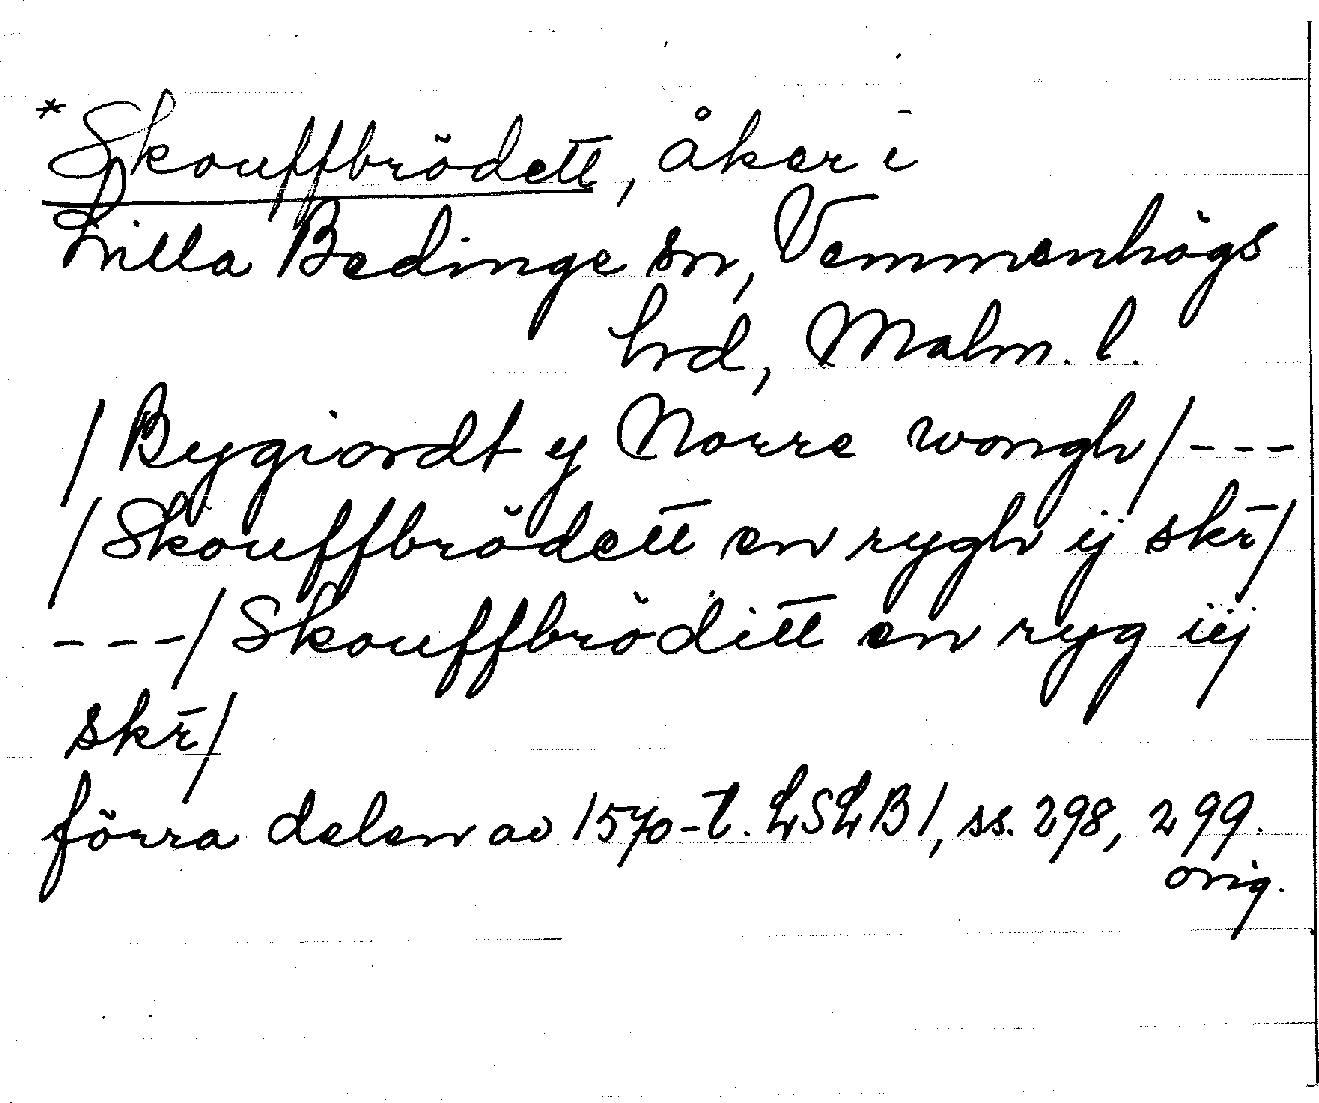 *Skouffbrödett, åker i
Lilla Bedinge sn, Vemmenhögs
hrd, Malm. l.
/Bygiordt y Norre wongh/---
/Skouffbrödett en rygh ij skr̄/
---/Skouffbröditt en ryg iij
skr̄/
förra delen av 1570-t. LSLB1, ss. 298, 299.
orig.